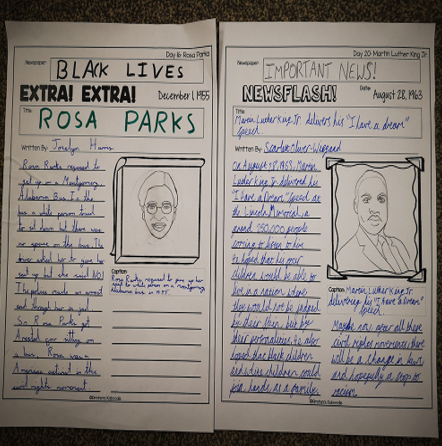 Day 16: Rosa Parks
Newspaper:
BLACK LIVES
EXTRA! EXTRA!
December 1, 1955
Title
ROSA PARKS
Written By:
Rosa Parks refused to
get up on a Montgomery,
Alabama Bus to the
bus a white person tried
to sit down but there was
no space on the bus. The
driver asked her to give her
seat up but she said NO!
The police made
and
So Rosa Parks got
Arrested for sitting on
a bus. Rosa was a
American activist in the
civil rights movement
Caption
Rosa Parks refused to give up her
seat to white person on a montgomery,
alabama bus in 1955.
Day 20: Martin Luther King Jr
Newspaper:
IMPORTANT NEWS!
NEWSFLASH!
Date:
August 28, 1963
Title
Martin Luther King Jr. delivers his "I have a dream"
speech
Written By: Scarlett
On August 28, 1963, Martin
Luther King Jr delivered his
"I Have a Dream" speech at
the Lincoln Memorial, a
around 250,000 people
coming to listen to him
he hoped that his four
children would be able to
live in a nation where
they would not be judged
by their skin, but by
their personalities. He also
hoped that black children
and white children could
join hands as a family.
Caption Martin Luther King Jr.
delivering his "I have a dream"
speech
Maybe now, after all these
civil rights movements, there
will be a change in laws
and hopefully a stop to
racism